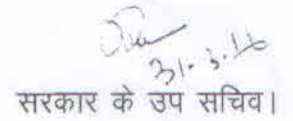 31.3.16
सरकार के उप सचिव।